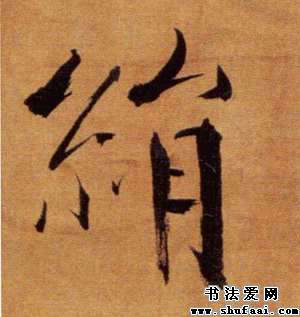 絹
书法爱网
www.shufaai.com